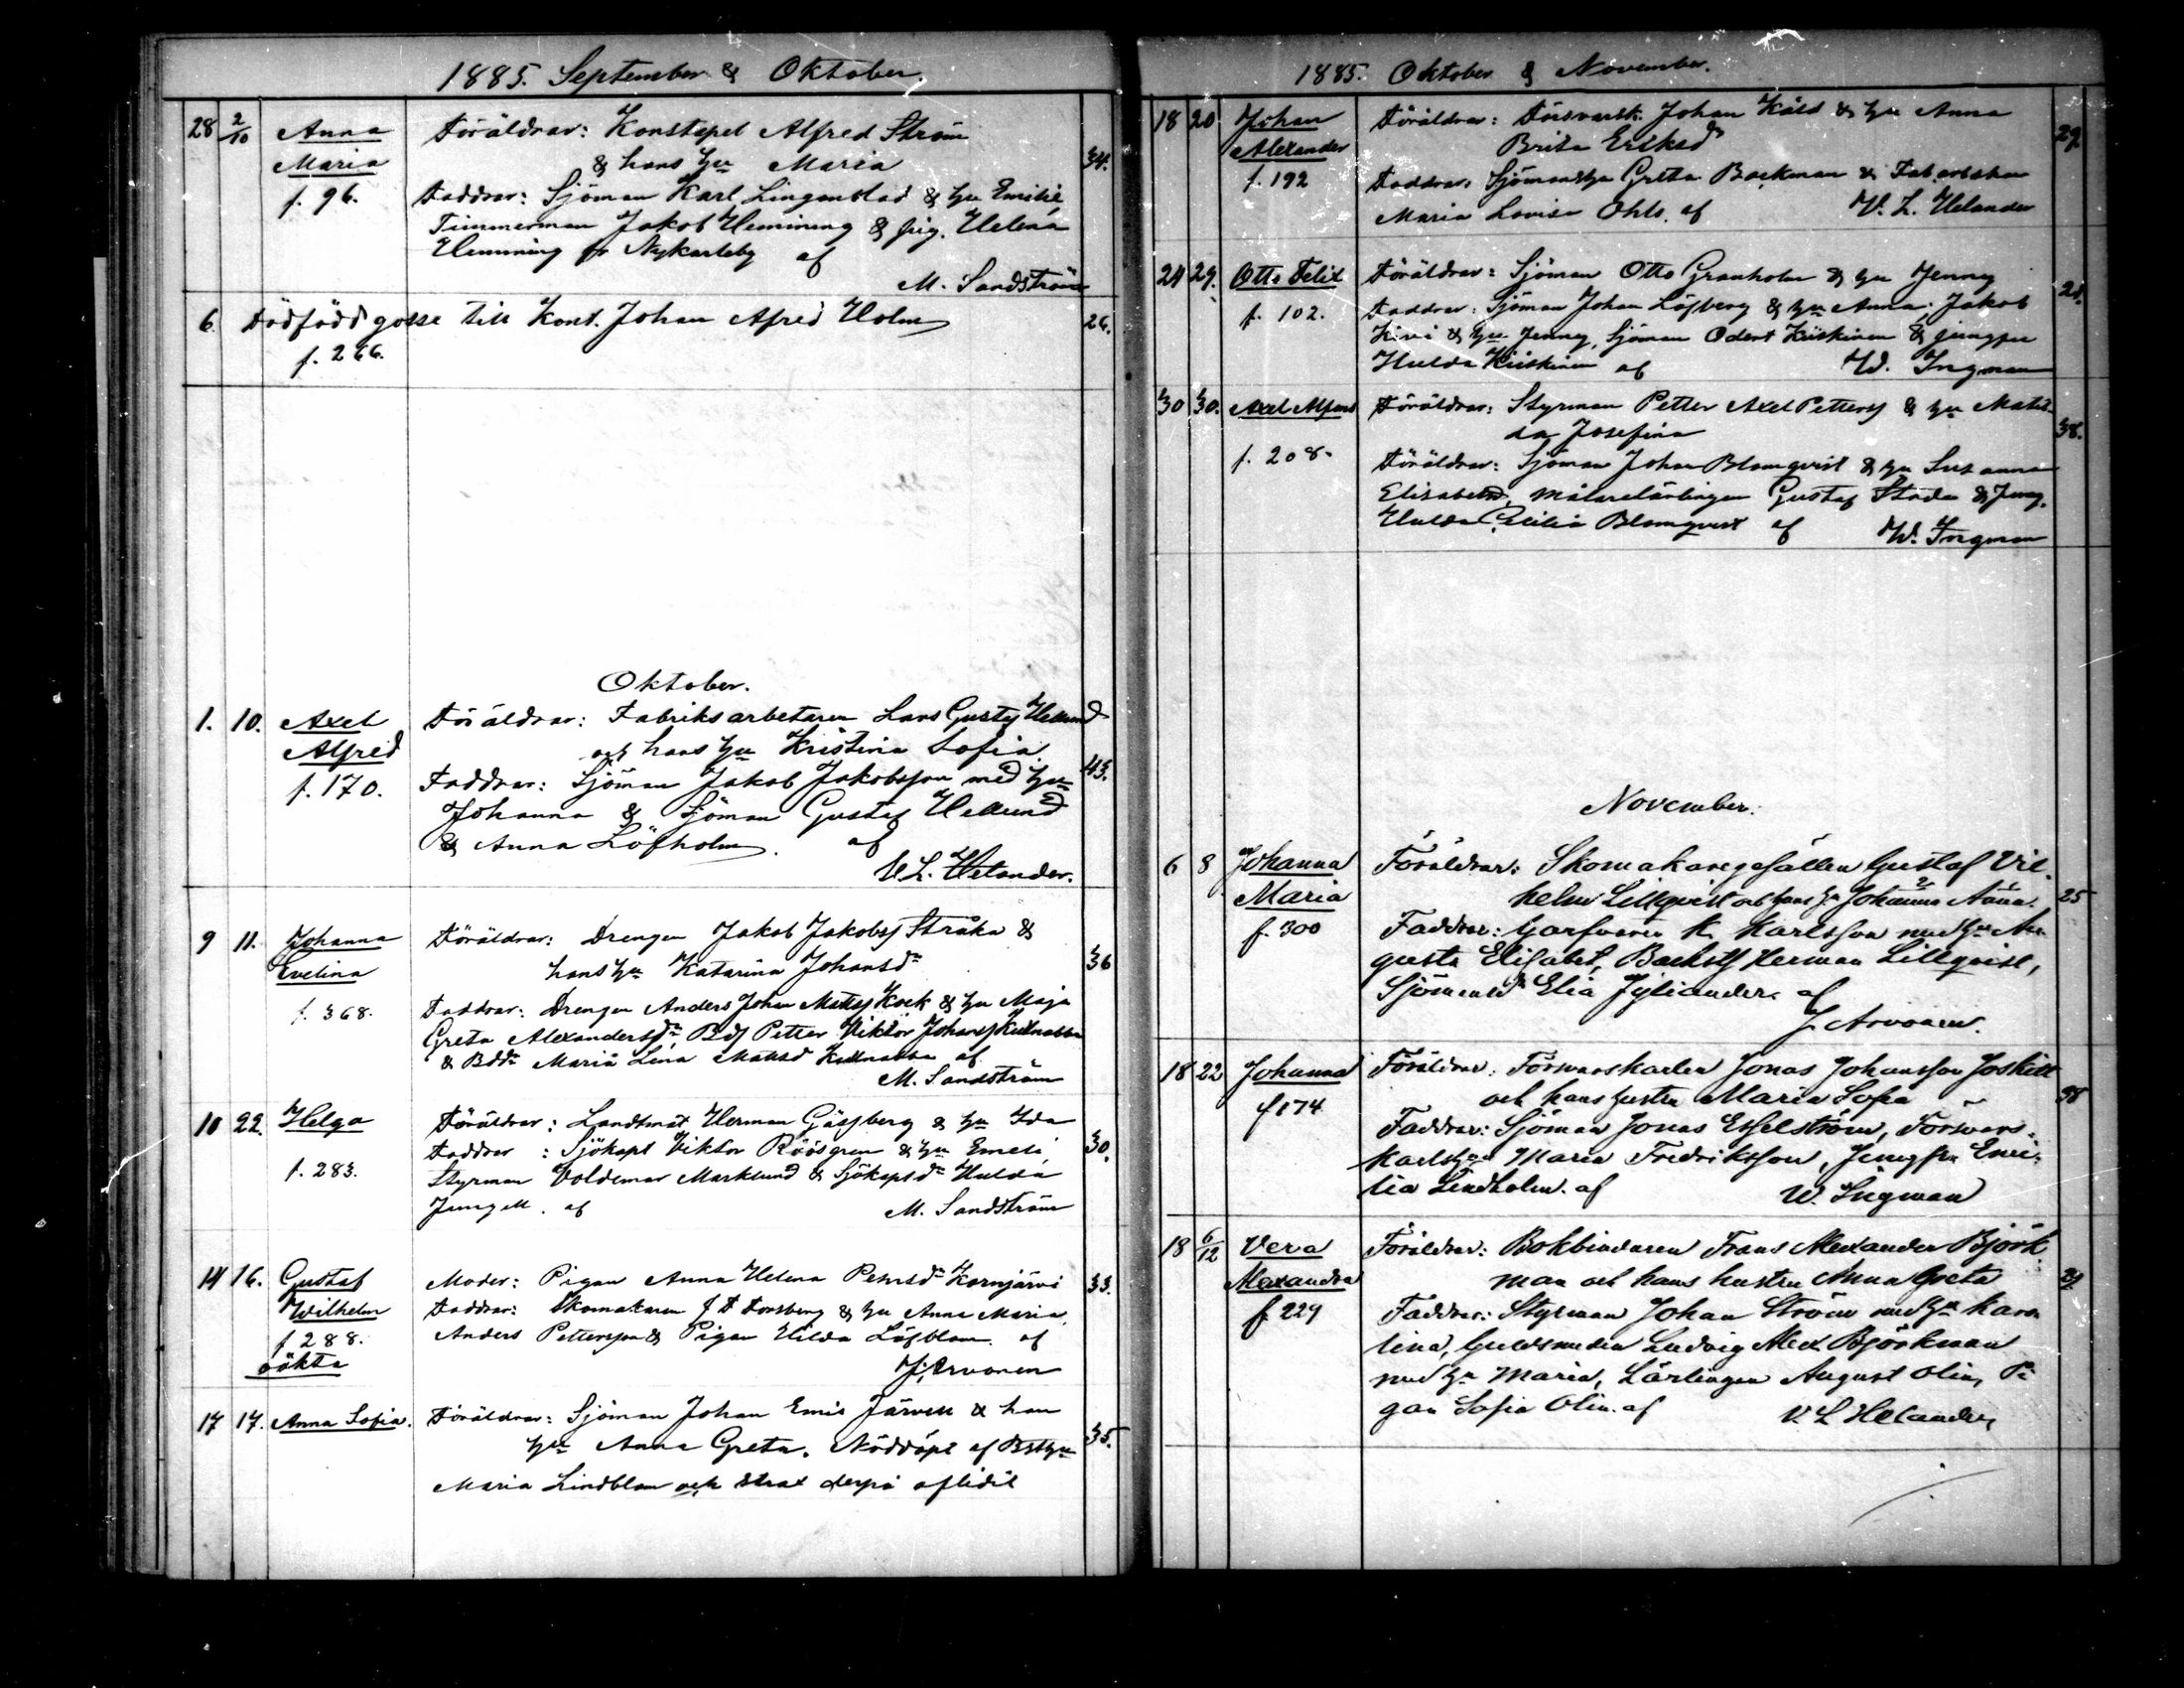 1885. September & Oktober.
28 2/10 Anna Föräldrar: Konstapel Alfred Ström
Maria & hans hu Maria 34.
f. 96. Faddrar: Sjöman Karl Lingonblad & hu Emilie,
Timmerman Jakob Hemming & pig. Helena
Hemming fr Nykarleby af
M. Sandström
6. Dödfödd gosse till Kont. Johan Afred Holm 26.
f. 266.
Oktober.
1. 10. Axel Föräldrar: Fabriksarbetaren Lars Gustf Hellund
Alfred och hans hu Kristina Sofia 43.
f. 170. Faddrar: Sjöman Jakob Jakobsson med hu
Johanna & Sjöman Gustaf Hellund
& Anna Löfholm. af
V. L. Helander.
9 11. Johanna Föräldrar: Drengen Jakob Jakobss Stråka &
Evelina hans hu Katarina Johansdr 36
f. 368. Faddrar: Drengen Anders Johan Matss Kock & hu Maja
Greta Alexandersdr, Bds Petter Viktor Johans
& Bddr Maria Lina Mattsd af
M. Sandström
10 22. Helga Föräldrar: Landtmät Herman Gåssberg & hu Ida
Faddrar: Sjökapt Viktor Röösgren & hu Emeli, 30.
f. 283. Styrman Voldemar Marklund & Sjökaptdr Hulda
Jungell. af M. Sandström
14 16. Gustaf Moder: Pigan Anna Helena Petersdr Kornjärvi 33.
Wilhelm Faddrar: Skomakaren J F Forsberg & hu Anna Maria,
f 288. Anders Pettersson & Pigan Hilda Löfblom. af
oäkta J. Arvonen
17 17. Anna Sofia. Föräldrar: Sjöman Johan Emil Järvell & han
hu Anna Greta. Nöddöpt af 35.
Maria Lindblom och strax derpå aflidit
1885. Oktober & November.
18 20 Johan Föräldrar: Försvarsk. Johan Käld & hu Anna
Alexander Brita Eriksd 29.
f. 192 Faddrar: Sjömanshu Greta Backman & Fab.arbetar
Maria Lovisa Ohls. af V. L. Helander
24 29. Otto Felix Föräldrar: Sjöman Otto Granholm & hu Jenny 21.
f. 102. Faddrar: Sjöman Johan Löfberg & hu Anna, Jakob
Kivi & hu Jenny, Sjöman Odert Kiiskinen & jungfru
Hulda Kiiskinen af W. Ingman
30 30. Axel Alfons Föräldrar: Styrman Petter Axel Petterss & hu Matil-
da Josefina 38.
f. 208. Föräldrar: Sjöman Johan Blomqvist & hu Susanna
Elisabeth, målarelärlingen Gustaf Stade & Jung.
Hulda Cecilia Blomqvist af W. Ingman
November.
6 8 Johanna Föräldrar: Skomakaregesällen Gustaf Vil-
Maria helm Lillqvist och hans hu Johanna Anna. 25
f. 300 Faddrar: Garfvaren K. Karlsson med hu Au-
gusta Elisabet, Herman Lillqvist,
Sjömansdr Elia Jylländer. af
J. Arvonen.
18 22 Johanna Föräldrar: Försvarskarlen Jonas Johansson Joskitt
f 174 och hans hustru Maria Sofia 38
Faddrar: Sjöman Jonas Esselström, Försvars-
karlshu Maria Fredriksson, Jungfru Emi-
lia Lindholm. af W. Ingman
18 6/12 Vera Föräldrar: Bokbindaren Frans Alexander Björk
Alexandra man och hans hustru Anna Greta 29
f. 229 Faddrar: Styrman Johan Ström med hu Karo-
lina, Guldsmeden Ludvig Alex Björkman
med hu Maria, Lärlingen August Olin, Pi-
gan Sofia Olin. af V L Helander